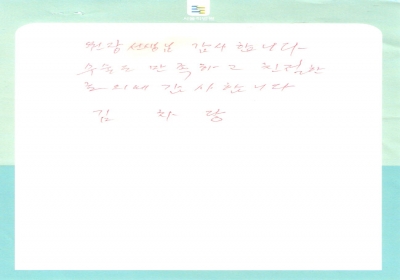 원장 선생님 감사합니다
수술도 만족하고 친절한
감사합니다
김 차 당